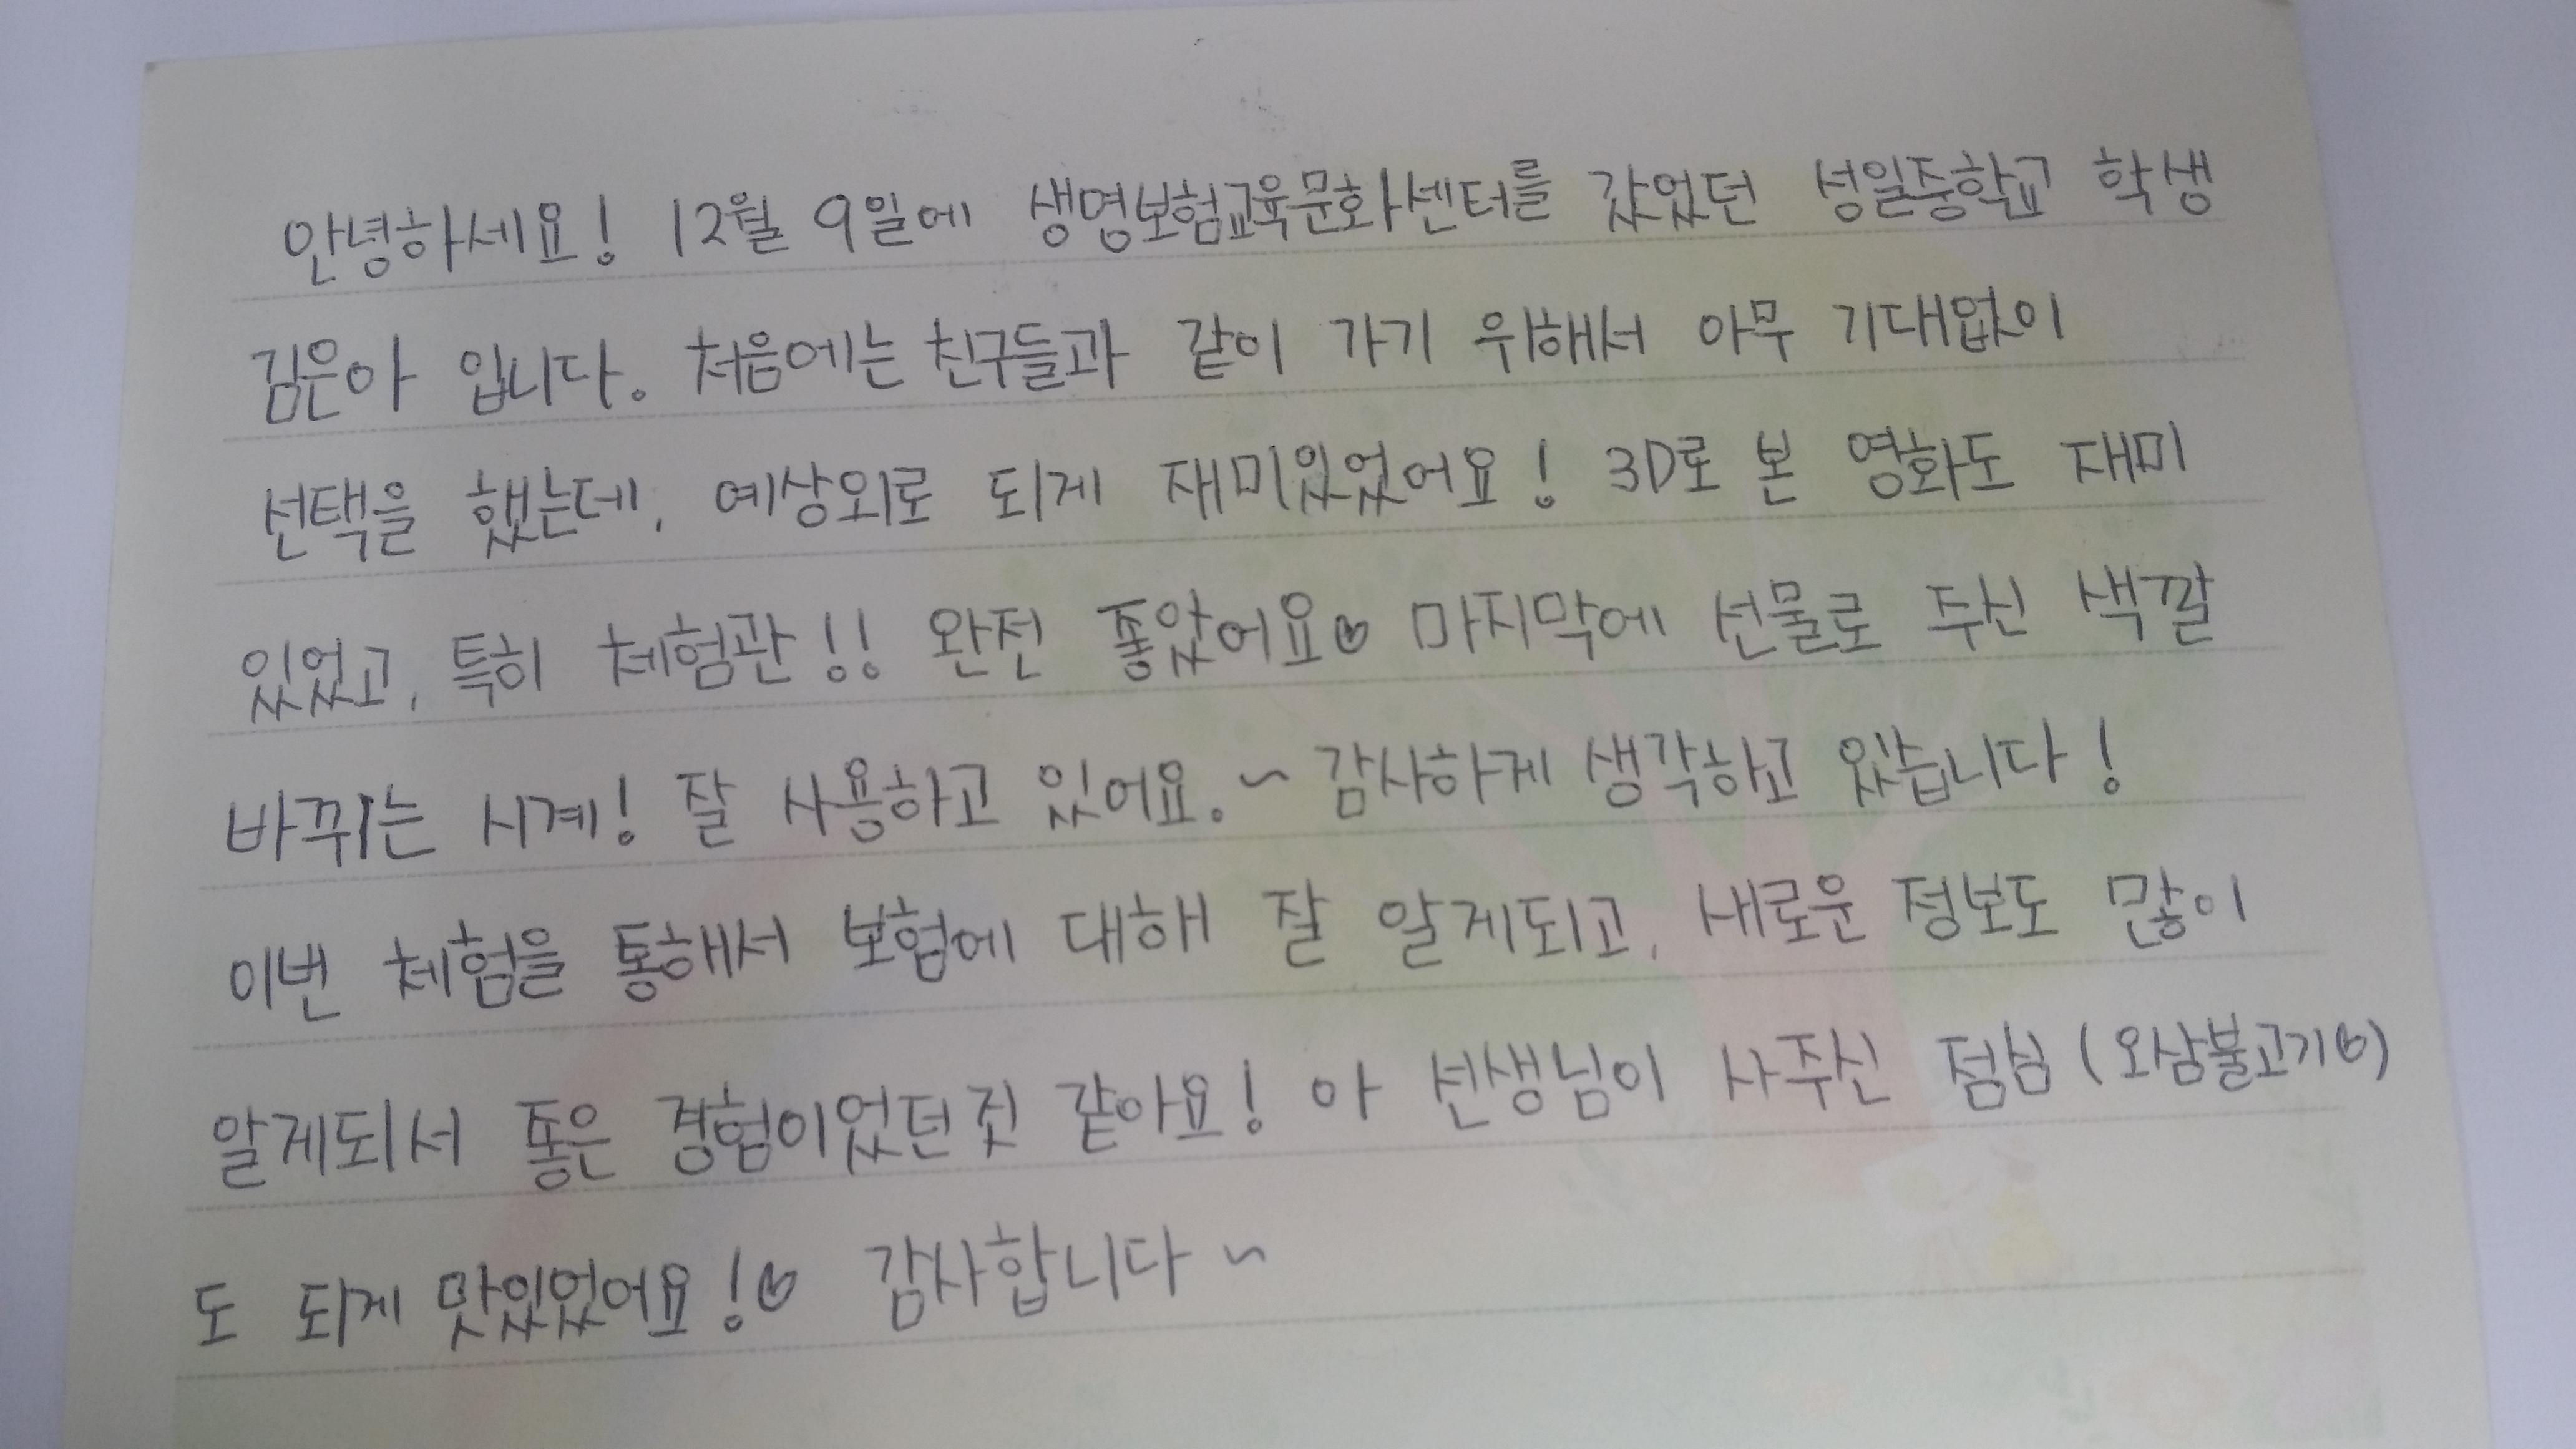 안녕하세요! 12월 9일에 생명보험교육문화센터를 갔었던 성일중학교 학생
김은아 입니다. 처음에는 친구들과 같이 가기 위해서 아무 기대없이
선택을 했는데, 예상외로 되게 재미있었어요! 3D로 본 영화도 재미
있었고, 특히 체험관!! 완전 좋았어요♡ 마지막에 선물로 주신 색깔
바뀌는 시계! 잘 사용하고 있어요.~ 감사하게 생각하고 있습니다!
이번 체험을 통해서 보험에 대해 잘 알게되고, 새로운 정보도 많이
알게되서 좋은 경험이었던것 같아요! 아 센생님이 사주신 점심 (오삼불고기♡)
도 되게 맛있었어요!♡ 감사합니다~